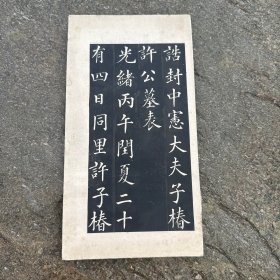 誥封中憲大夫子椿
許公墓表
光緒丙午閏夏二十
有四日同里許子椿